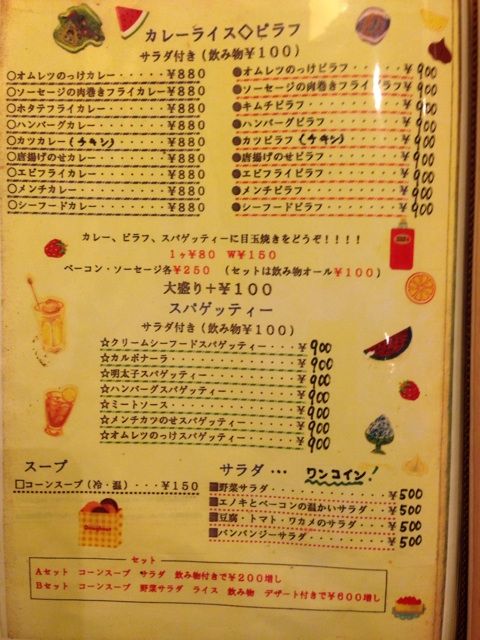 カレーライス◇ピラフ
サラダ付き(飲み物￥100)
○オムレツのっけカレー・・・・・・￥880
○ソーセージの肉巻きフライカレー￥880
○ホタテフライカレー・・・・・・・￥880
○ハンバーグカレー・・・・・・・・￥880
○カツカレー(チキン)・・・・・・￥880
○唐揚げのせカレー・・・・・・・・￥880
○エビフライカレー・・・・・・・・￥880
○メンチカレー・・・・・・・・・・￥880
○シーフードカレー・・・・・・・・￥880
●オムレツのっけピラフ・・・・・・￥900
●ソーセージの肉巻きフライピラフ￥900
●キムチピラフ・・・・・・・・・・￥900
●ハンバーグピラフ・・・・・・・・￥900
●カツピラフ(チキン)・・・・・・￥900
●唐揚げのせピラフ・・・・・・・・￥900
●エビフライピラフ・・・・・・・・￥900
●メンチピラフ・・・・・・・・・・￥900
●シーフードピラフ・・・・・・・・￥900
カレー、ピラフ、スパゲッティーに目玉焼きをどうぞ！！！！
1ヶ￥80 W￥150
ベーコン・ソーセージ各￥250 (セットは飲み物オール￥100)
大盛り＋￥100
スパゲッティー
サラダ付き(飲み物￥100)
☆クリームシーフードスパゲッティー・・・・￥900
☆カルボナーラ・・・・・・・・・・・・・・￥900
☆明太子スパゲッティー・・・・・・・・・・￥900
☆ハンバーグスパゲッティー・・・・・・・・￥900
☆ミートソース・・・・・・・・・・・・・・￥900
☆メンチカツのせスパゲッティー・・・・・・￥900
☆オムレツのっけスパゲッティー・・・・・・￥900
スープ
□コーンスープ(冷・温)・・・￥150
サラダ… ワンコイン！
■野菜サラダ・・・・・・・・・・・・・￥500
■エノキとベーコンの温かいサラダ・・￥500
■豆腐・トマト・ワカメのサラダ・・・￥500
■バンバンジーサラダ・・・・・・・・￥500
Doughnut
セット
Aセット コーンスープ サラダ 飲み物付きで￥200増し
Bセット コーンスープ 野菜サラダ ライス 飲み物 デザート付きで￥600増し